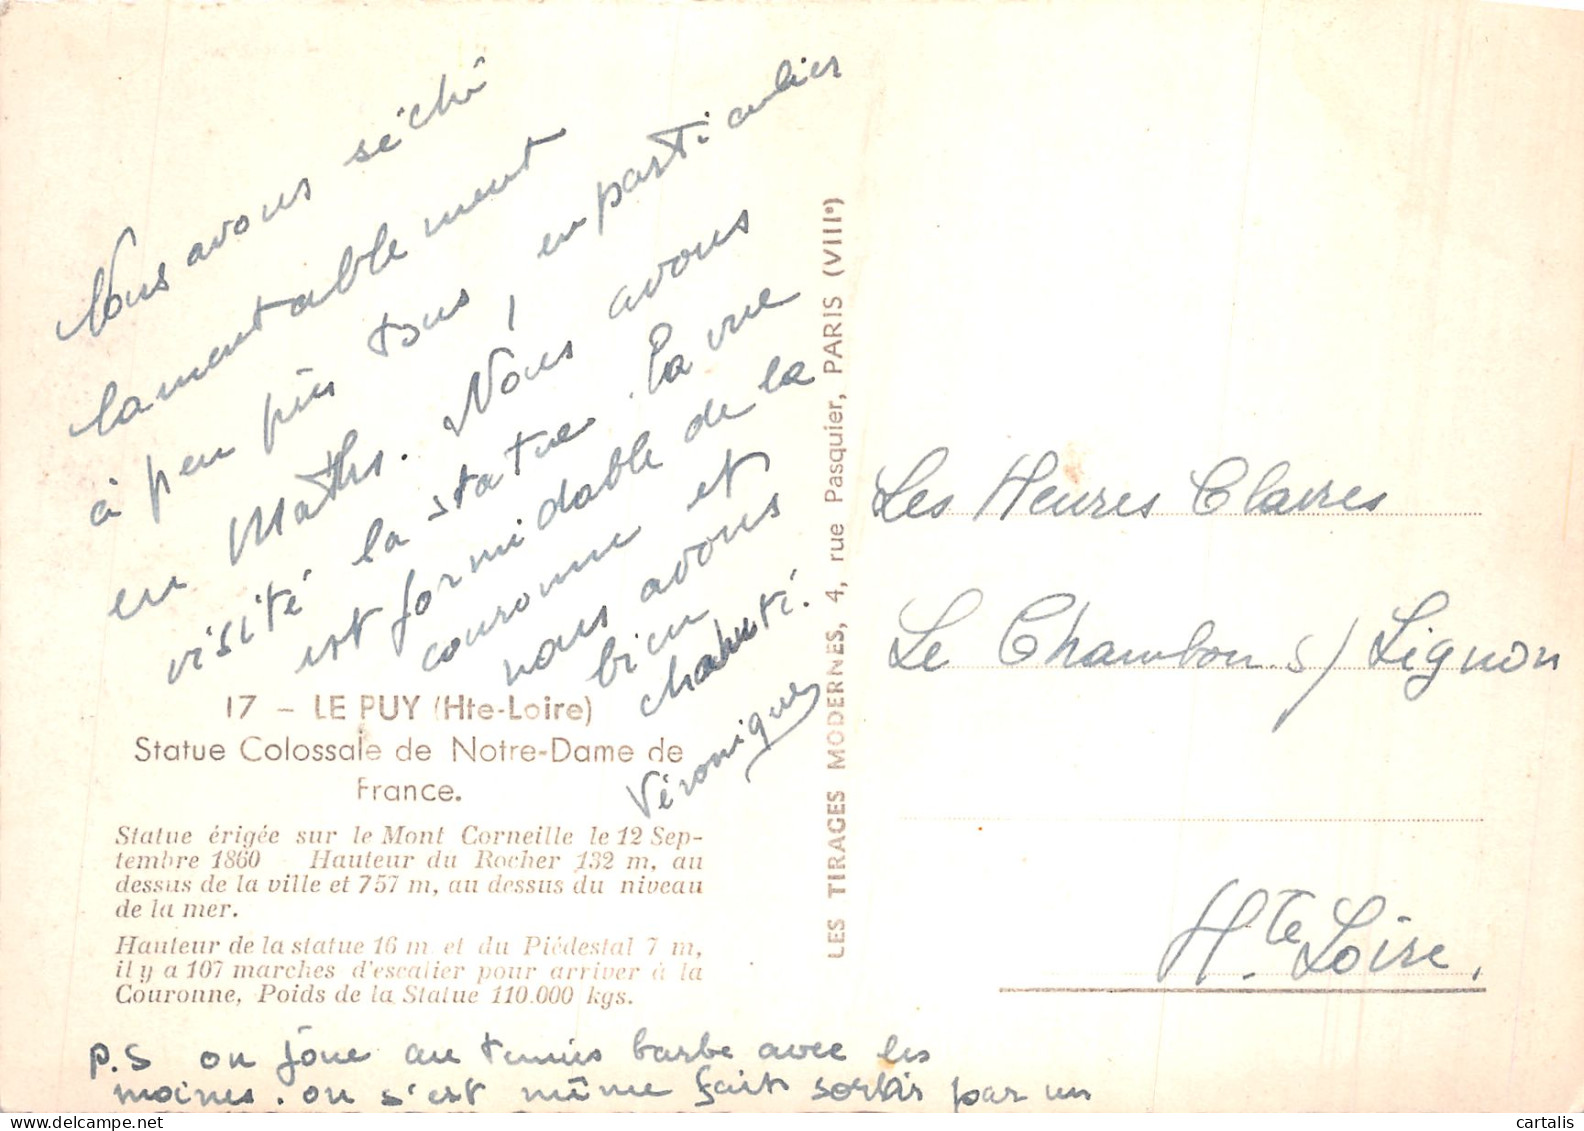 Nous avons séché
lamentablement
à peu près tous, en particulier
en Maths. Nous avons
visité la statue. La vue
est formidable de la
couronne et
nous avons
bien
chahuté.
Véronique
17 - LE PUY (Hte-Loire)
Statue Colossale de Notre-Dame de
France.
Statue érigée sur le Mont Corneille le 12 Sep-
tembre 1860 Hauteur du Rocher 132 m, au
dessus de la ville et 757 m, au dessus du niveau
de la mer.
Hauteur de la statue 16 m et du Piédestal 7 m,
il y a 107 marches d'escalier pour arriver à la
Couronne, Poids de la Statue 110.000 kgs.
P.S on joue au tennis barbe avec les
moines. on s'est même fait sortir par un
LES TIRAGES MODERNES, 4, rue Pasquier, PARIS (VIIIe)
Les Heures Claires
Le Chambon s/ Lignon
Hte Loire.
cartalis